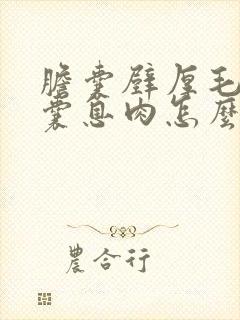 膽囊壁厚毛
囊息肉怎麼
農合行